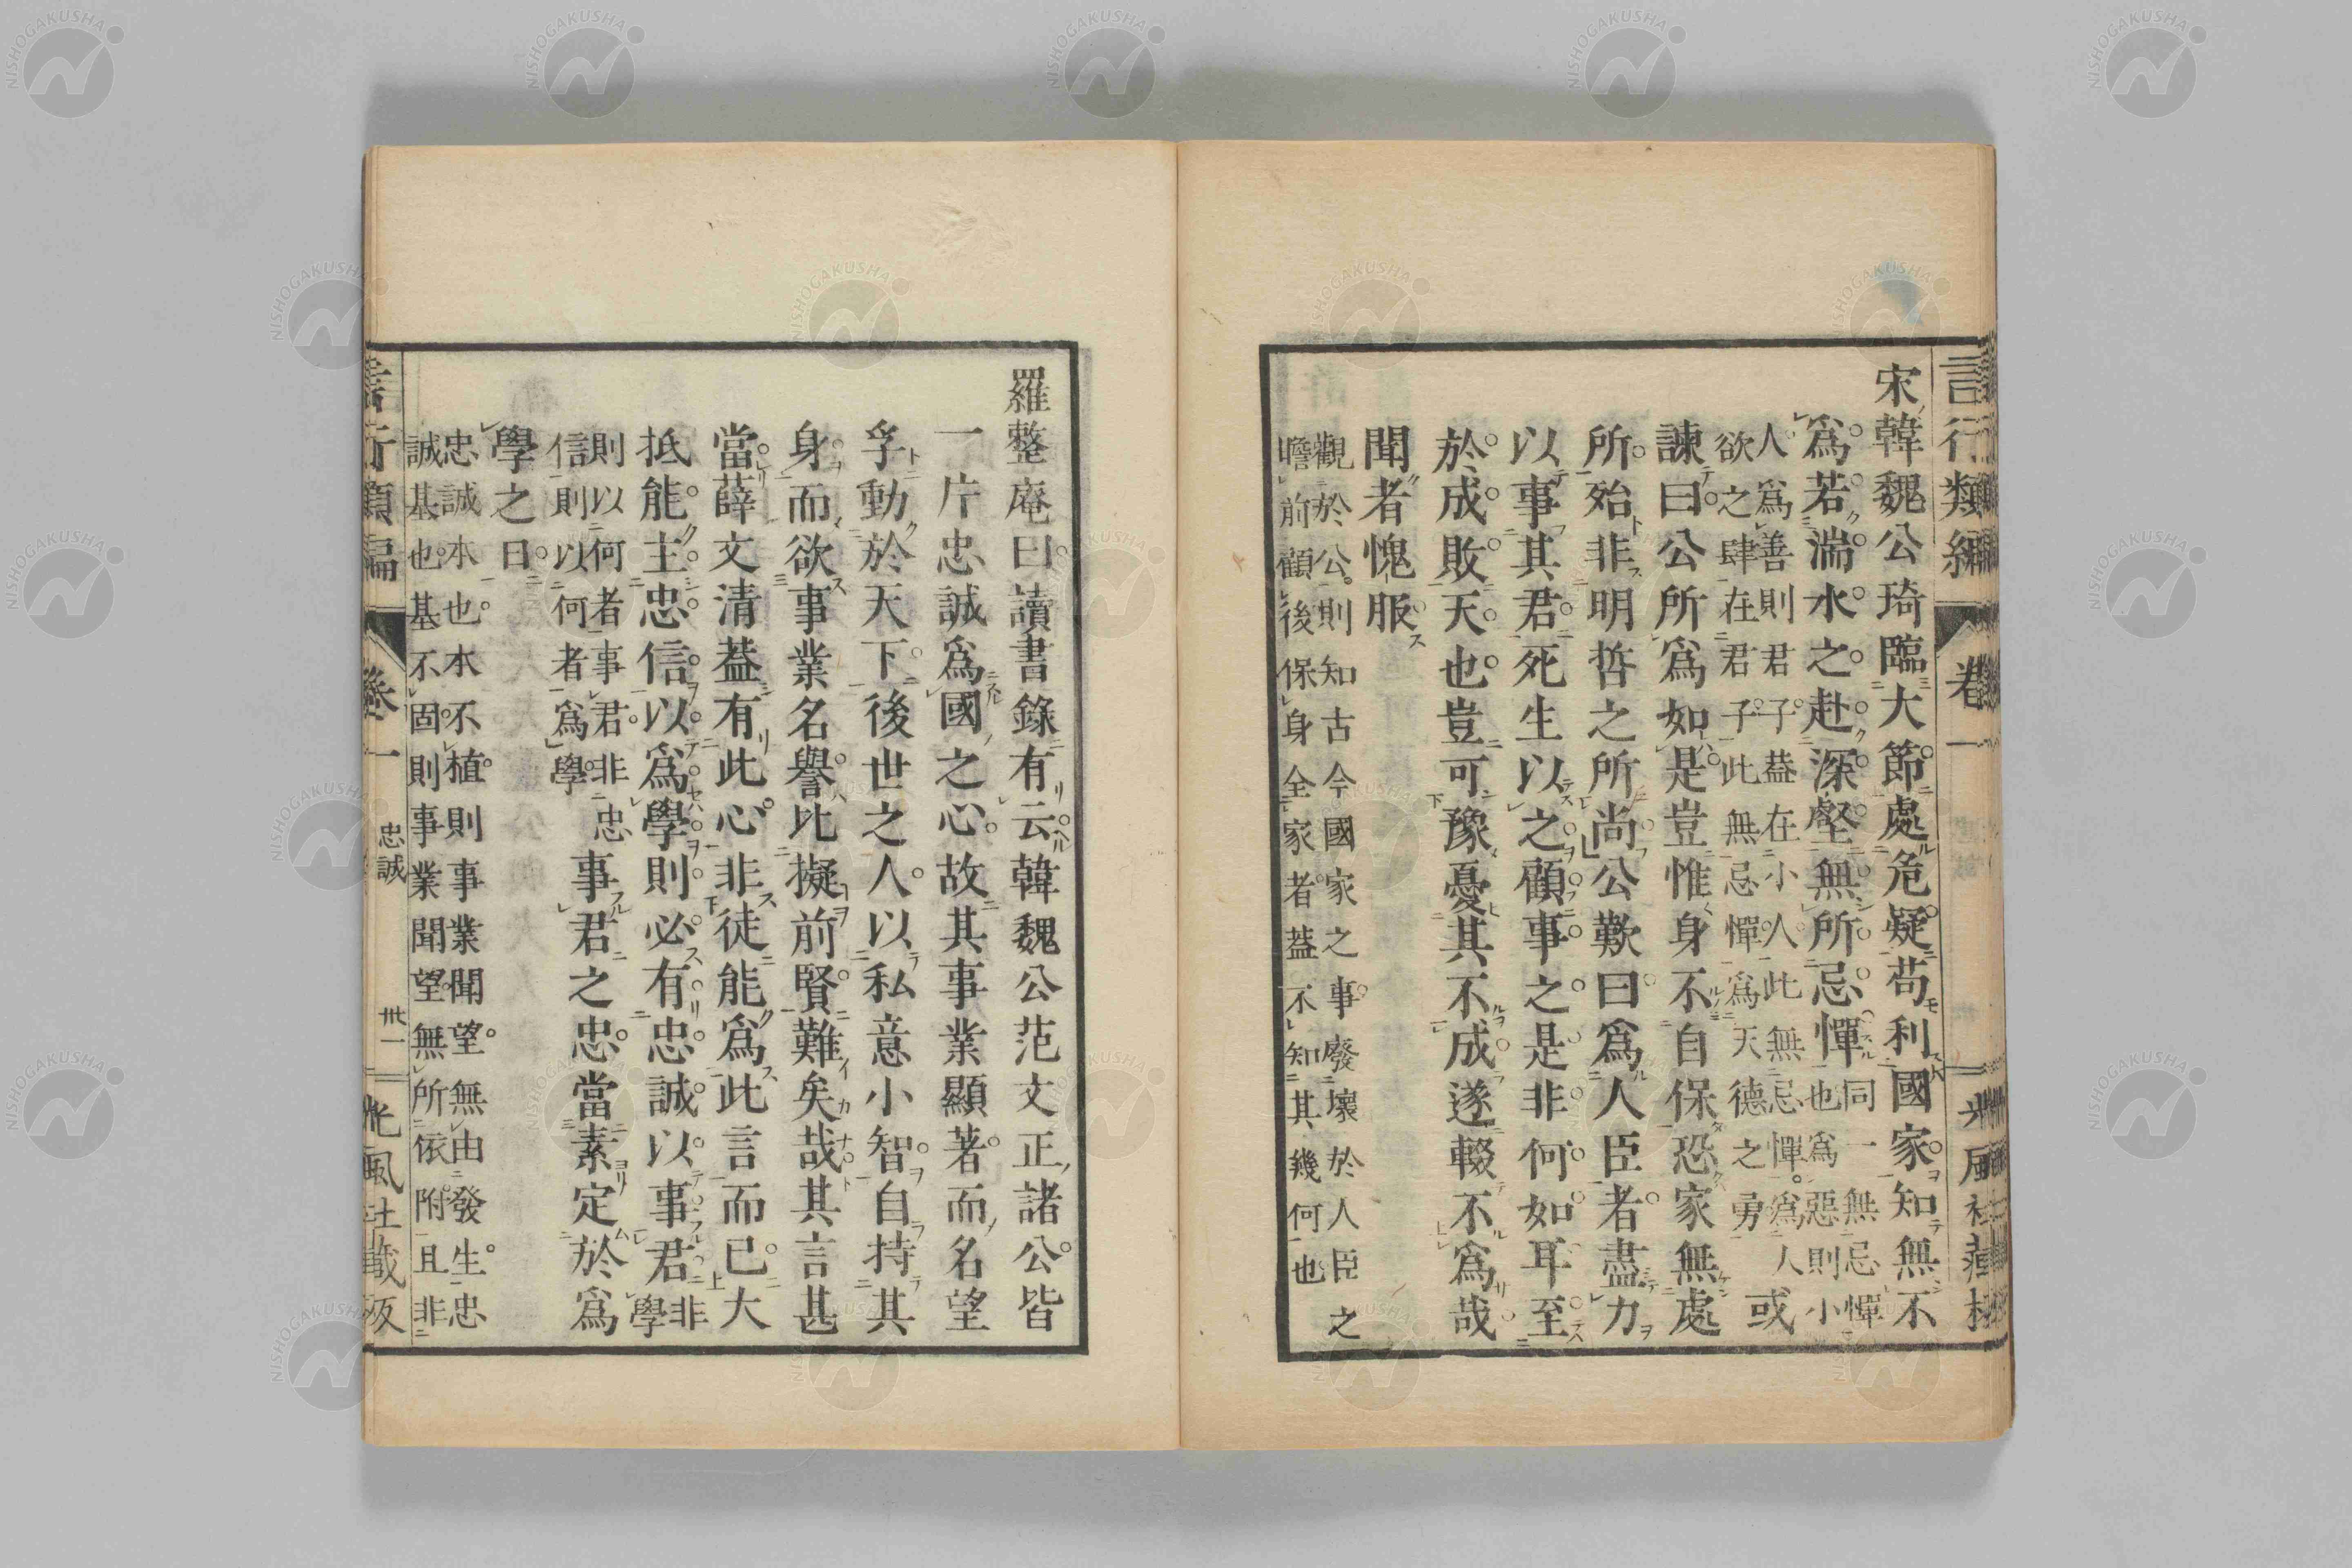 言行類編 卷一
宋韓魏公琦臨大節處危疑苟利國家知無不
爲若湍水之赴深壑無所忌憚同一無忌憚
也爲惡則小
人爲善則君子葢在小人此無忌憚爲人
欲之肆在君子此無忌憚爲天德之勇或
諫曰公所爲如是豈惟身不自保恐家無處
所殆非明哲之所尚公歎曰爲人臣者盡力
以事其君死生以之顧事之是非何如耳至
於成敗天也豈可豫憂其不成遂輟不爲哉
聞者愧服
觀於公則知古今國家之事廢壞於人臣之
瞻前顧後保身全家者葢不知其幾何也
羅整庵曰讀書錄有云韓魏公范文正諸公皆
一片忠誠爲國之心故其事業顯著而名望
孚動於天下後世之人以私意小智自持其
身而欲事業名譽比擬前賢難矣哉其言甚
當薛文清葢有此心非徒能爲此言而已大
抵能主忠信以爲學則必有忠誠以事君非
學
則以何者事君非忠
信則以何者爲學
事君之忠當素定於爲
學之日
忠誠本也本不植則事業聞望無由發生忠
誠基也基不固則事業聞望無所依附且非
言行類編 卷一 忠誠 卅一 光風社藏板
NISHOGAKUSHA